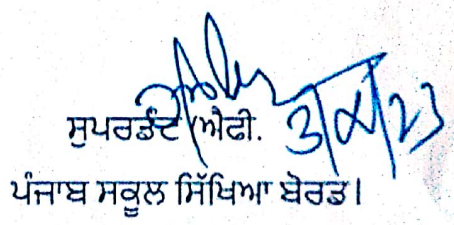 ਸੁਪਰਡੰਟ (ਐਫੀ.
ਪੰਜਾਬ ਸਕੂਲ ਸਿੱਖਿਆ ਬੋਰਡ।